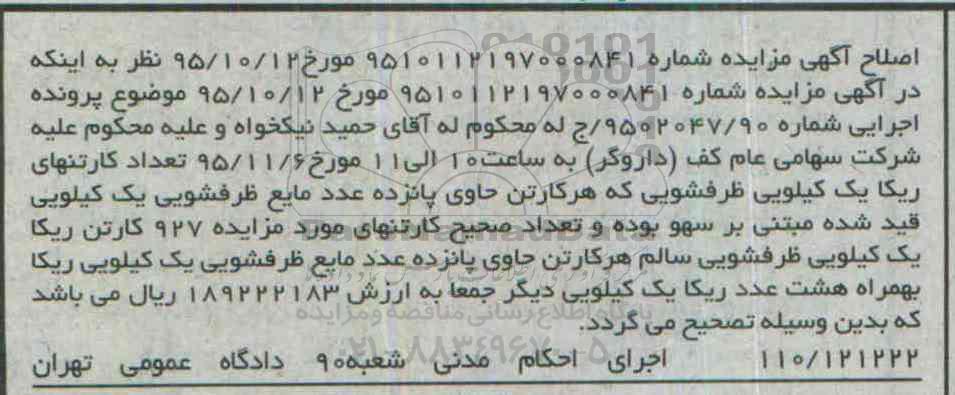 اصلاح آگهی مزایده شماره ۹۵۱۰۱۱۲۱۹۷۰۰۰۸۴۱ مورخ۹۵/۱۰/۱۲ نظر به اینکه
در آگهی مزایده شماره ۹۵۱۰۱۱۲۱۹۷۰۰۰۸۴۱ مورخ ۹۵/۱۰/۱۲ موضوع پرونده
اجرایی شماره ۹۵۰۲۰۴۷/۹۰/ج له محکوم له آقای حمید نیکخواه و علیه محکوم علیه
شرکت سهامی عام کف (داروگر) به ساعت۱۰ الی۱۱ مورخ۹۵/۱۱/۶ تعداد کارتنهای
ریکا یک کیلویی ظرفشویی که هرکارتن حاوی پانزده عدد مایع ظرفشویی یک کیلویی
قید شده مبتنی بر سهو بوده و تعداد صحیح کارتنهای مورد مزایده ۹۲۷ کارتن ریکا
یک کیلویی ظرفشویی سالم هرکارتن حاوی پانزده عدد مایع ظرفشویی یک کیلویی ریکا
بهمراه هشت عدد ریکا یک کیلویی دیگر جمعا به ارزش ۱۸۹۲۲۲۱۸۳ ریال می باشد
که بدین وسیله تصحیح می گردد.
۱۱۰/۱۲۱۲۲۲ اجرای احکام مدنی شعبه۹۰ دادگاه عمومی تهران